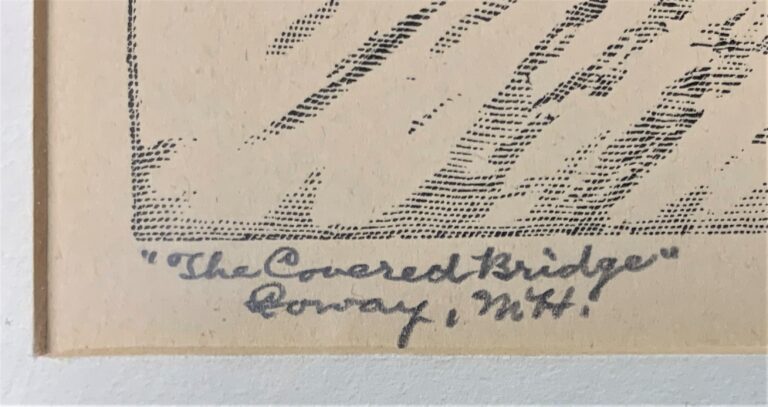 "The Covered Bridge"
Conway, N.H.